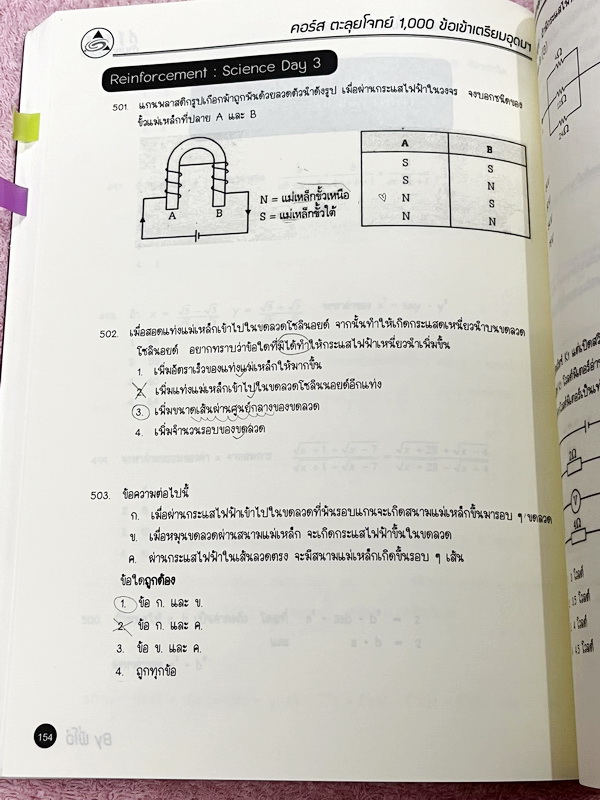 คอร์ส ตะลุยโจทย์ 1,000 ข้อเข้าเตรียมอุดมฯ
Reinforcement : Science Day 3
501. แกนพลาสติกรูปเกือกม้าถูกพันด้วยลวดตัวนำดังรูป เมื่อผ่านกระแสไฟฟ้าในวงจร จงบอกชนิดของ
ขั้วแม่เหล็กที่ปลาย A และ B
A B
N = แม่เหล็กขั้วเหนือ
S = แม่เหล็กขั้วใต้
A B
S S
S N
N S
N N
502. เมื่อสอดแท่งแม่เหล็กเข้าไปในขดลวดโซลินอยด์ จากนั้นทำให้เกิดกระแสเหนี่ยวนำบนขดลวด
โซลินอยด์ อยากทราบว่าข้อใดที่มิได้ทำให้กระแสไฟฟ้าเหนี่ยวนำเพิ่มขึ้น
1. เพิ่มอัตราเร็วของแท่งแม่เหล็กให้มากขึ้น
2. เพิ่มแท่งแม่เหล็กเข้าไปในขดลวดโซลินนอยด์อีกแท่ง
3. เพิ่มขนาดเส้นผ่านศูนย์กลางของขดลวด
4. เพิ่มจำนวนรอบของขดลวด
503. ข้อความต่อไปนี้
ก. เมื่อผ่านกระแสไฟฟ้าเข้าไปในขดลวดที่พันรอบแกนจะเกิดสนามแม่เหล็กขึ้นมารอบ ๆ ขดลวด
ข. เมื่อหมุนขดลวดผ่านสนามแม่เหล็ก จะเกิดกระแสไฟฟ้าขึ้นในขดลวด
ค. ผ่านกระแสไฟฟ้าในเส้นลวดตรง จะมีสนามแม่เหล็กเกิดขึ้นรอบ ๆ เส้น
ข้อใดถูกต้อง
1. ข้อ ก. และ ข.
2. ข้อ ก. และ ค.
3. ข้อ ข. และ ค.
4. ถูกทุกข้อ
154